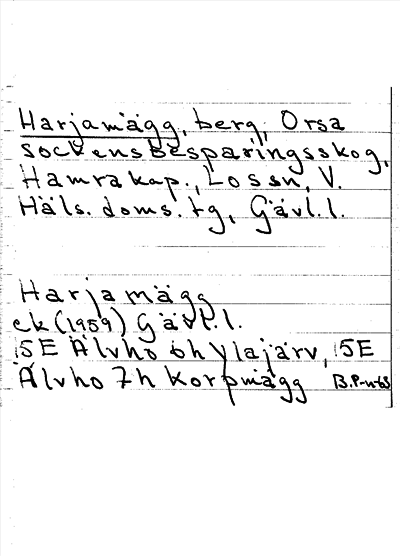 Harjamägg, berg, Orsa
sockensbesparingsskog,
Hamra kap., Lossn, V.
Häls. doms. tg, Gävl. l.
Harjamägg
ek (1959) Gävl. l.
15E Älvho 6h Ylajärv, 15E
Älvho 7h Korpmägg B.P-n 63